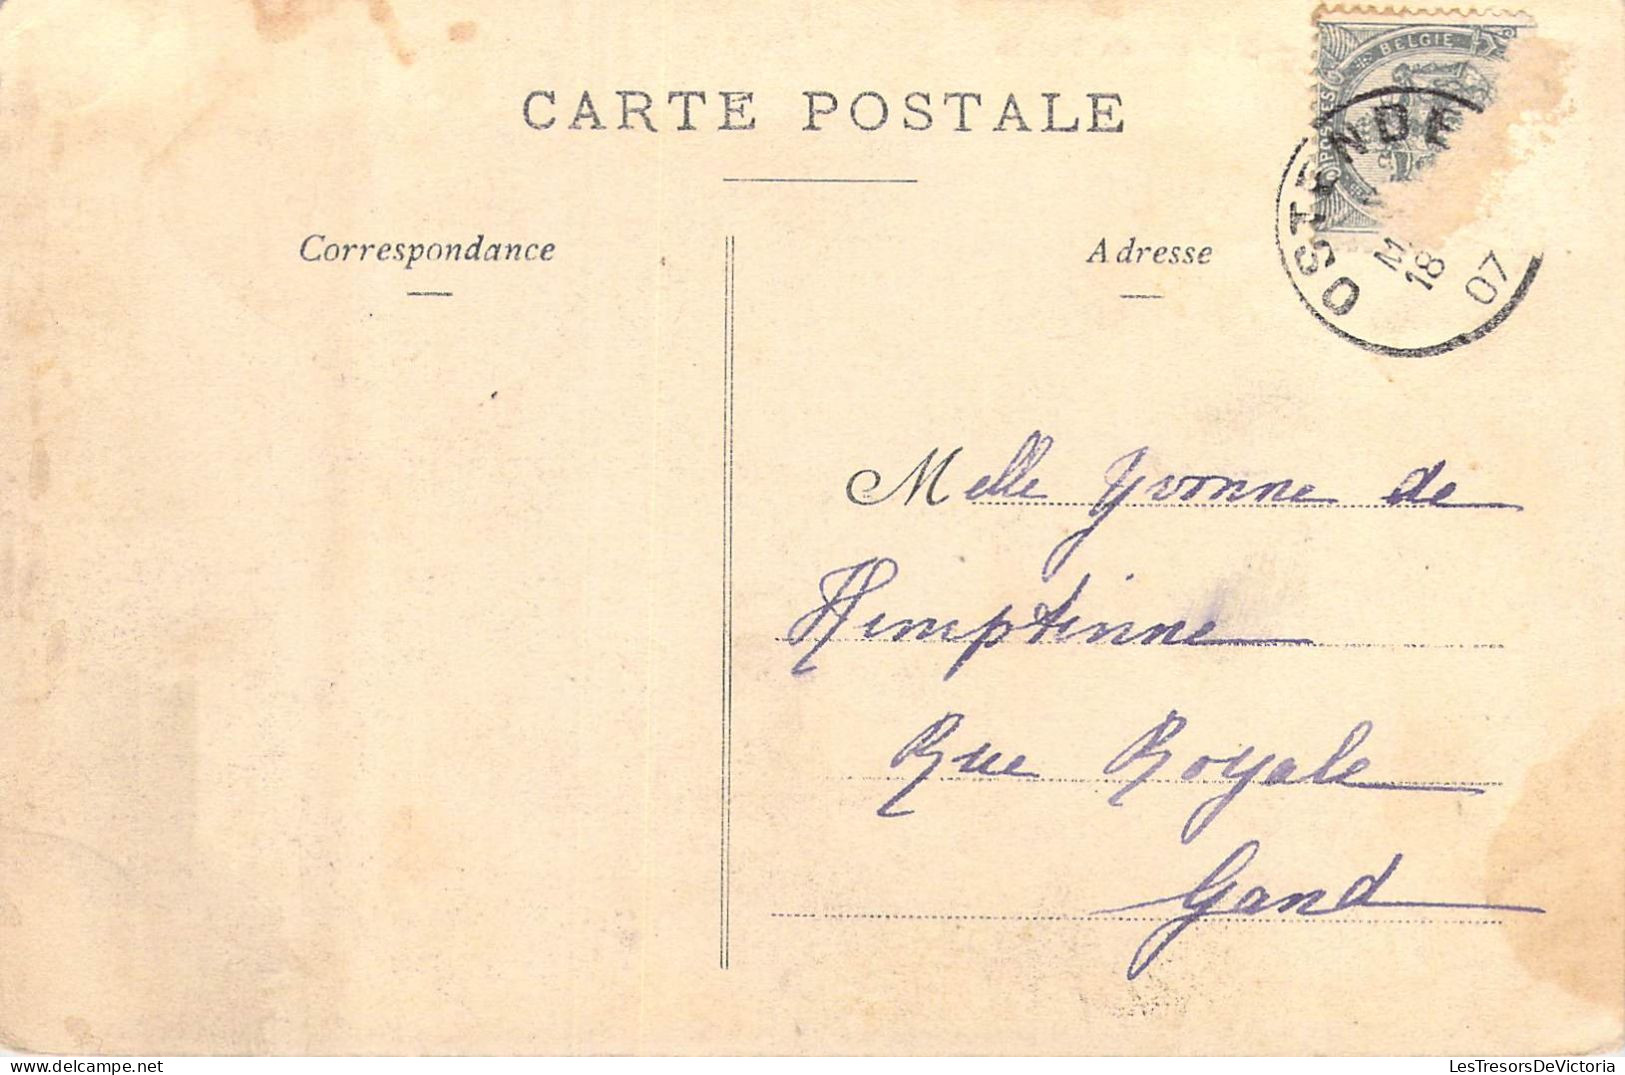 CARTE POSTALE
Correspondance
Adresse
BELGIE
POSTES
OSTENDE
18
07
Melle Yvonne de
Hemptinne
Rue Royale
Gand
LesTresorsDeVictoria